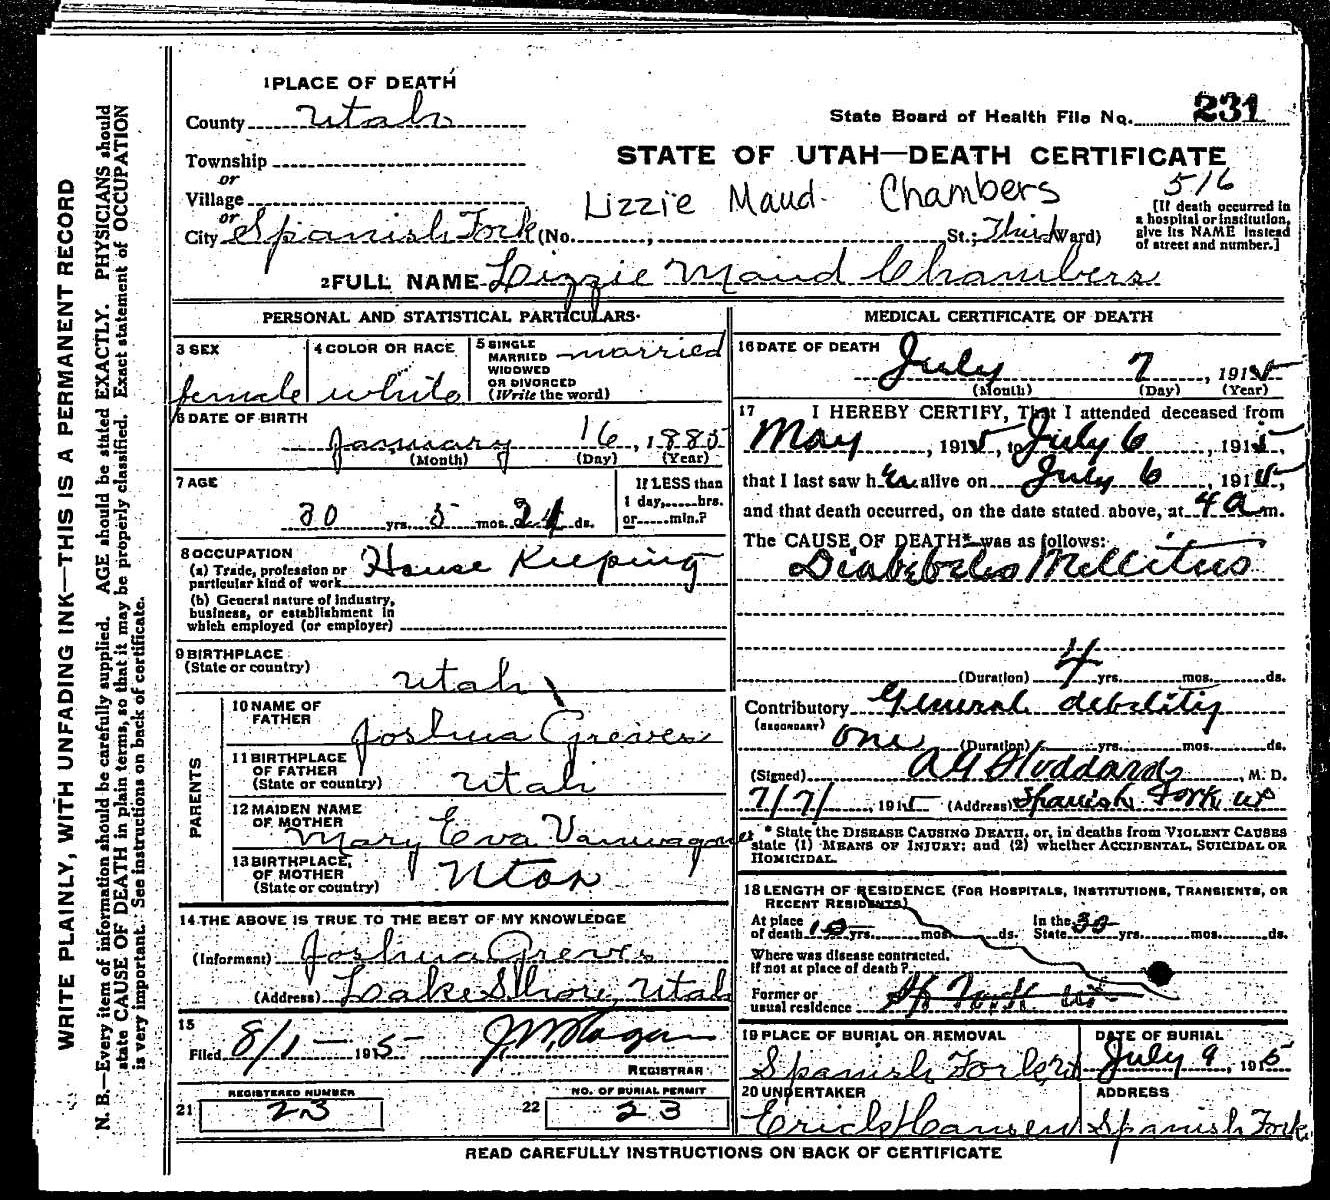 1 PLACE OF DEATH
County Utah
State Board of Health File No. 231
Township
or
Village
or
City Spanish Fork (No. , St.; Third Ward)
STATE OF UTAH—DEATH CERTIFICATE
Lizzie Maud Chambers
516
[If death occurred in
a hospital or institution,
give its NAME instead
of street and number.]
2 FULL NAME Lizzie Maud Chambers
PERSONAL AND STATISTICAL PARTICULARS
3 SEX
female
4 COLOR OR RACE
white
5 SINGLE
MARRIED
WIDOWED
OR DIVORCED
(Write the word)
married
6 DATE OF BIRTH
January 16, 1885
(Month) (Day) (Year)
7 AGE
30 yrs. 5 mos. 21 ds.
If LESS than
1 day, hrs.
or min.?
8 OCCUPATION
(a) Trade, profession or
particular kind of work House Keeping
(b) General nature of industry,
business, or establishment in
which employed (or employer)
9 BIRTHPLACE
(State or country)
Utah
PARENTS
10 NAME OF
FATHER
Joshua Greves
11 BIRTHPLACE
OF FATHER
(State or country)
Utah
12 MAIDEN NAME
OF MOTHER
Mary Eva Vanwagoner
13 BIRTHPLACE,
OF MOTHER
(State or country)
Utah
14 THE ABOVE IS TRUE TO THE BEST OF MY KNOWLEDGE
(Informant) Joshua Greves
(Address) Lake Shore, Utah
15
Filed 8/1 — 1915
REGISTRAR
REGISTERED NUMBER
21 23
NO. OF BURIAL PERMIT
22 23
MEDICAL CERTIFICATE OF DEATH
16 DATE OF DEATH
July 7, 1915
(Month) (Day) (Year)
17 I HEREBY CERTIFY, That I attended deceased from
May, 1915, to July 6, 1915,
that I last saw her alive on July 6, 1915,
and that death occurred, on the date stated above, at 4 a m.
The CAUSE OF DEATH* was as follows:
Diabetes Mellitus
(Duration) 4 yrs. mos. ds.
Contributory General debility
(SECONDARY)
one (Duration) yrs. mos. ds.
(Signed) Stoddard, M. D.
7/7/, 1915 (Address) Spanish Fork ut
* State the DISEASE CAUSING DEATH, or, in deaths from VIOLENT CAUSES
state (1) MEANS OF INJURY; and (2) whether ACCIDENTAL, SUICIDAL OR
HOMICIDAL.
18 LENGTH OF RESIDENCE (FOR HOSPITALS, INSTITUTIONS, TRANSIENTS, OR
RECENT RESIDENTS)
At place
of death 10 yrs. mos. ds.
In the
State 30 yrs. mos. ds.
Where was disease contracted,
if not at place of death?
Former or
usual residence Sp Fork ut
19 PLACE OF BURIAL OR REMOVAL
Spanish Fork
DATE OF BURIAL
July 9, 1915
20 UNDERTAKER
Erick Hansen
ADDRESS
Spanish Fork
READ CAREFULLY INSTRUCTIONS ON BACK OF CERTIFICATE
WRITE PLAINLY, WITH UNFADING INK—THIS IS A PERMANENT RECORD
N. B.—Every item of information should be carefully supplied. AGE should be stated EXACTLY. PHYSICIANS should
state CAUSE OF DEATH in plain terms, so that it may be properly classified. Exact statement of OCCUPATION
is very important. See instructions on back of certificate.